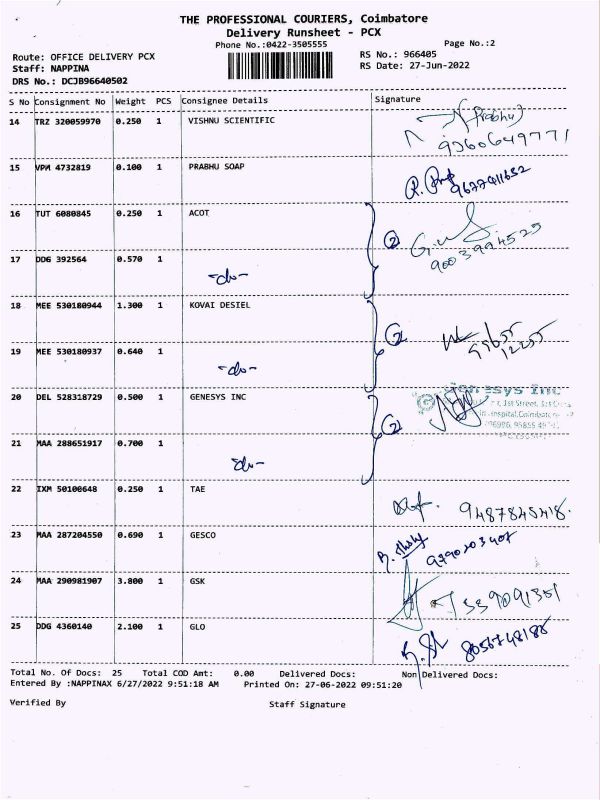 THE PROFESSIONAL COURIERS, Coimbatore
Delivery Runsheet - PCX
Phone No.:0422-3505555
Page No.:2
Route: OFFICE DELIVERY PCX
RS No.: 966405
Staff: NAPPINA
RS Date: 27-Jun-2022
DRS No.: DCJB96640502
S No Consignment No Weight PCS Consignee Details Signature
14 TRZ 320059970 0.250 1 VISHNU SCIENTIFIC
(Prabhu)
9360649771
15 VPM 4732819 0.100 1 PRABHU SOAP
9677411652
16 TUT 6080845 0.250 1 ACOT
2
9003994525
17 DDG 392564 0.570 1
-do-
18 MEE 530180944 1.300 1 KOVAI DESIEL
2
99655
12255
19 MEE 530180937 0.640 1
-do-
20 DEL 528318729 0.500 1 GENESYS INC
Genesys Inc
1st Street,
2
21 MAA 288651917 0.700 1
-do-
22 IXM 50100648 0.250 1 TAE
9487845418.
23 MAA 287204550 0.690 1 GESCO
24 MAA 290981907 3.800 1 GSK
25 DDG 4360140 2.100 1 GLO
8056748188
Total No. Of Docs: 25 Total COD Amt: 0.00 Delivered Docs: Non Delivered Docs:
Entered By :NAPPINAX 6/27/2022 9:51:18 AM Printed On: 27-06-2022 09:51:20
Verified By Staff Signature